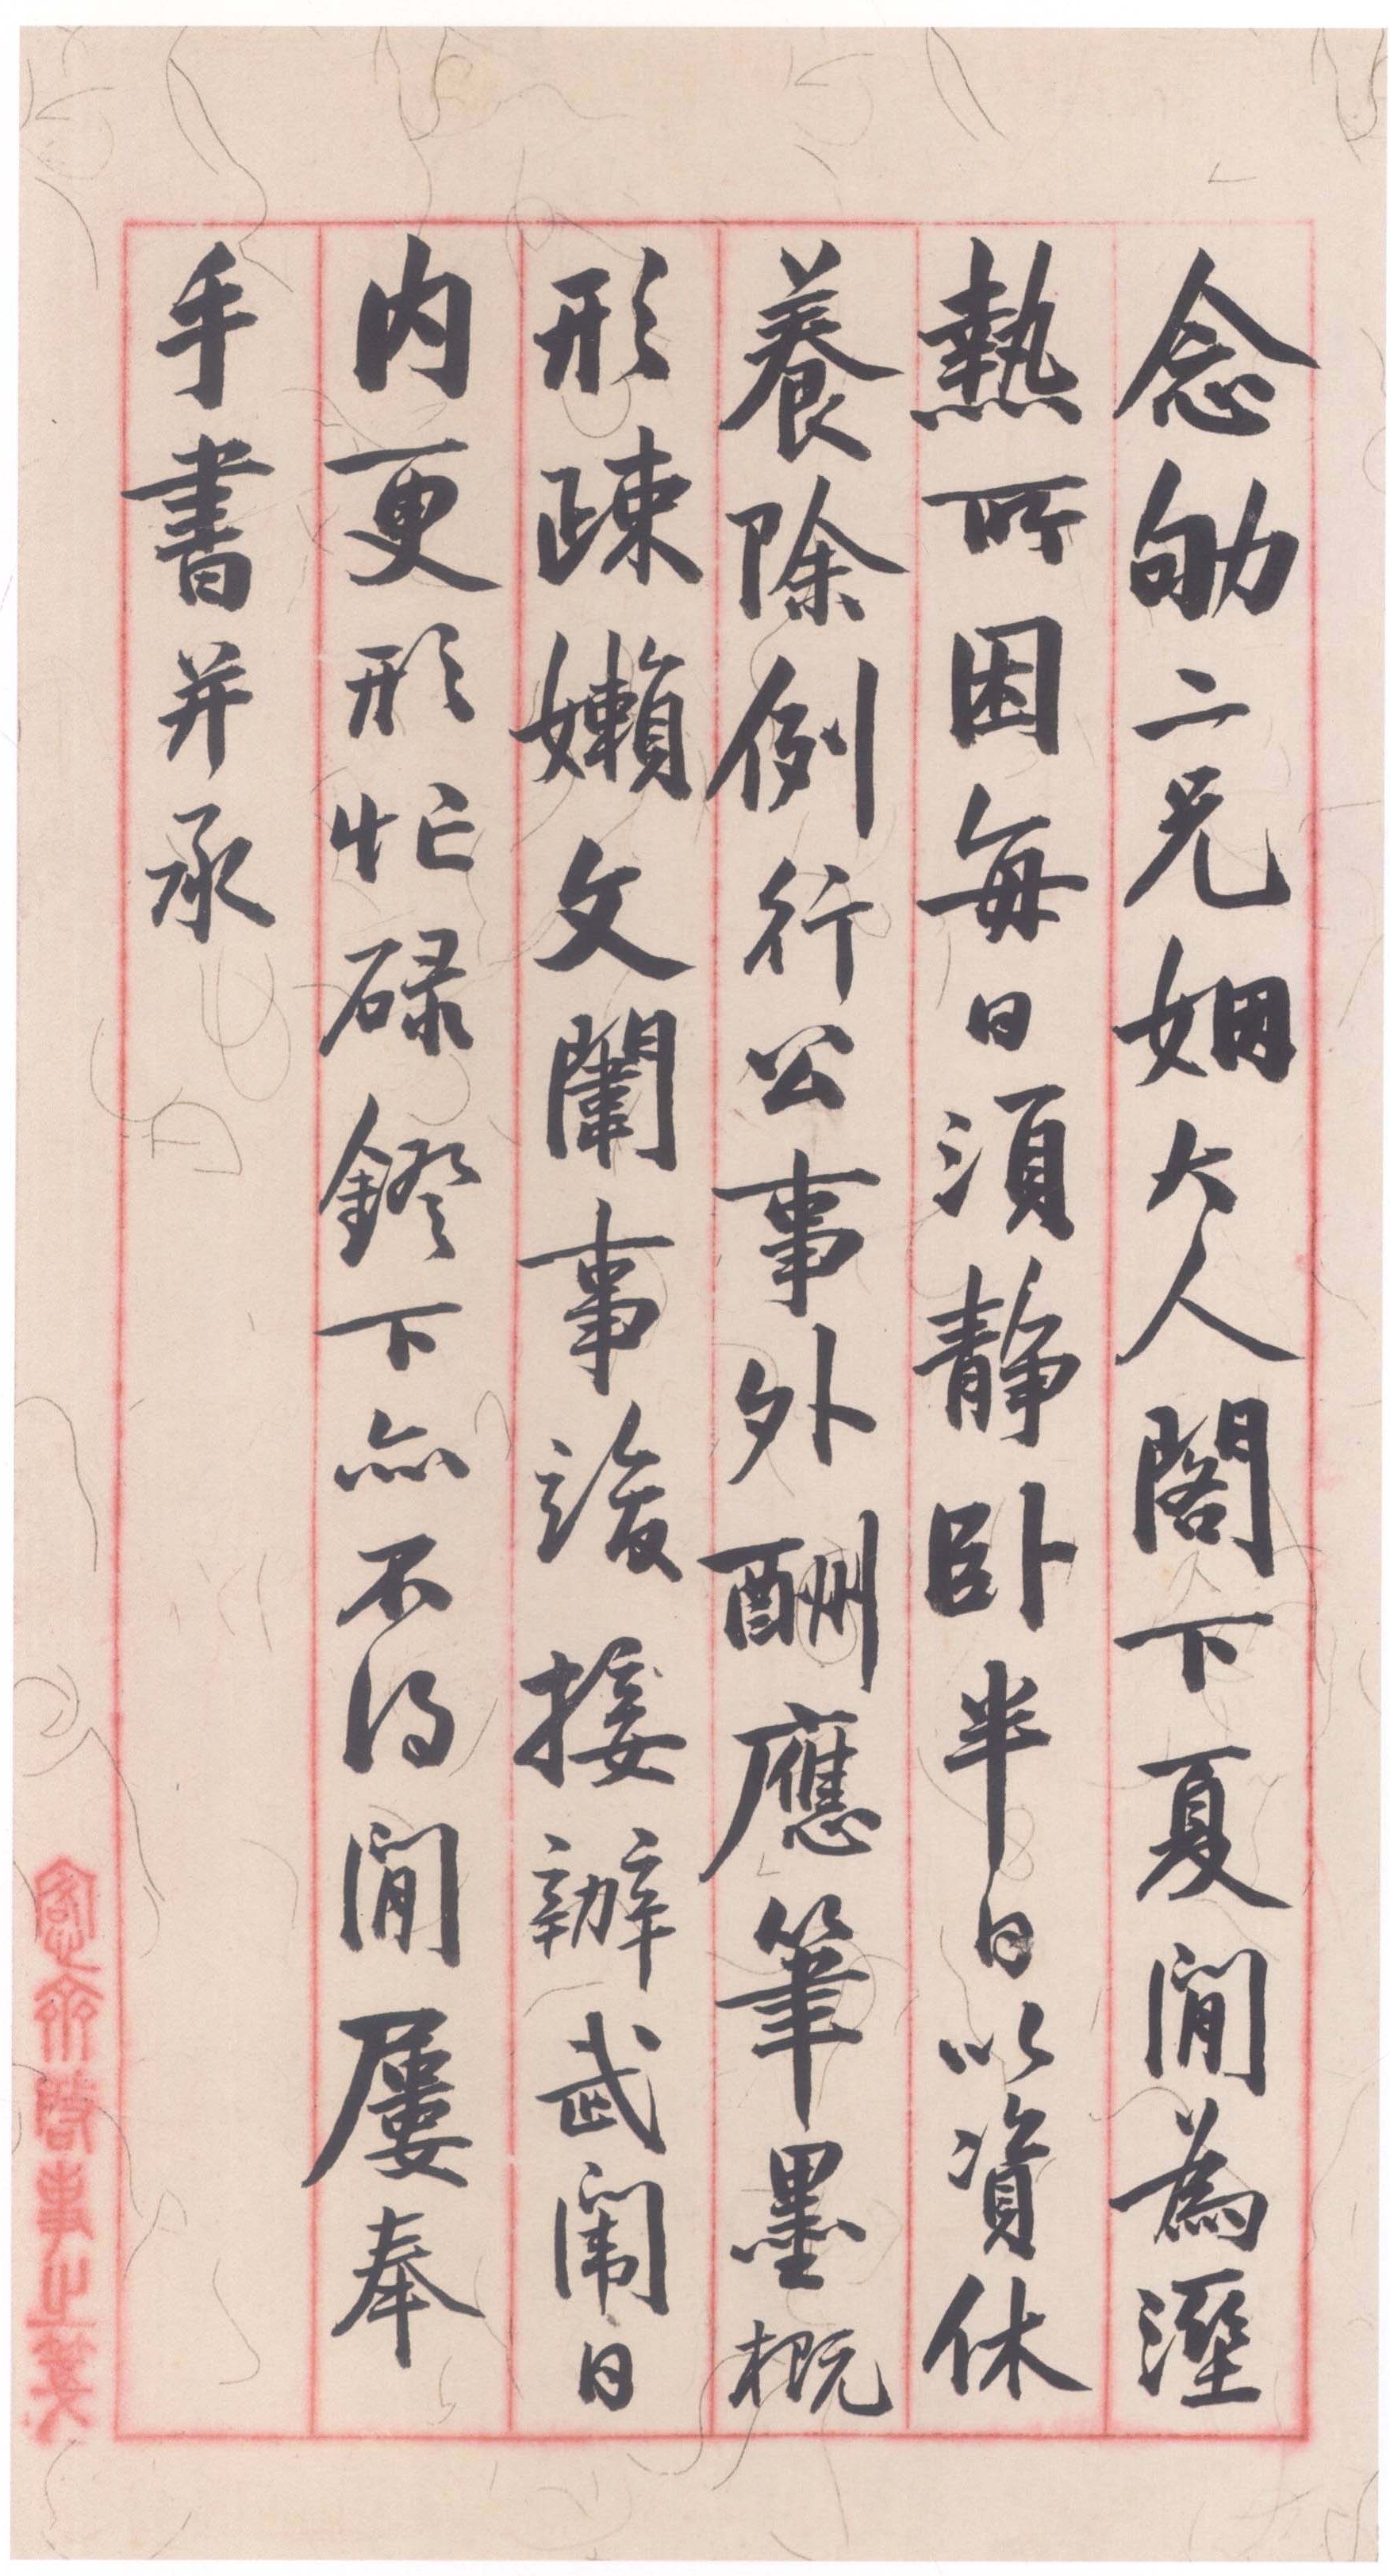 念劬二兄姻大人閣下夏閒為溼
熱所困每日須静卧半日以資休
養除例行公事外酬應筆墨概
形疎嬾文闈事竣接辦武闈日
内更形忙碌鐙下亦不得閒屢奉
手書并承
愙齋啓事之箋